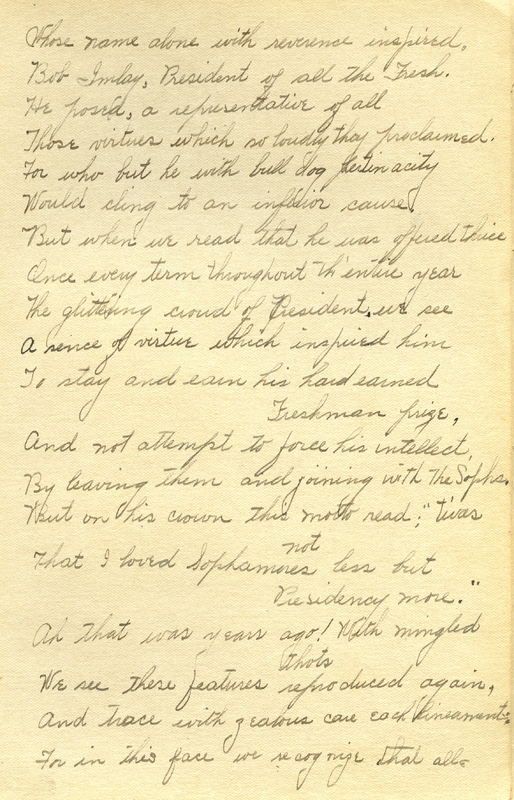 Whose name alone with reverence inspired,
Bob Imlay, President of all the Fresh.
He posed, a representative of all
Those virtues which so loudly they proclaimed.
For who but he with bull dog pertinacity
Would cling to an inferior cause!
But when we read that he was offered thrice
Once every term throughout th' entire year
The glittering crowd of President, we see
A sence of virtue which inspired him
To stay and earn his hard earned
Freshman prize,
And not attempt to force his intellect,
By leaving them and joining with the Sophs.
But on his crown this motto read; "twas
not
That I loved Sophamores less but
Presidency more."
Ah that was years ago! With mingled
thots
We see these features reproduced again,
And trace with zealous care each lineament:
For in this face we recognize that all-